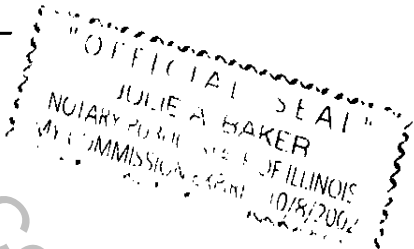 "OFFICIAL SEAL"
JULIE A BAKER
NOTARY PUBLIC STATE OF ILLINOIS
MY COMMISSION EXPIRES 10/8/2002